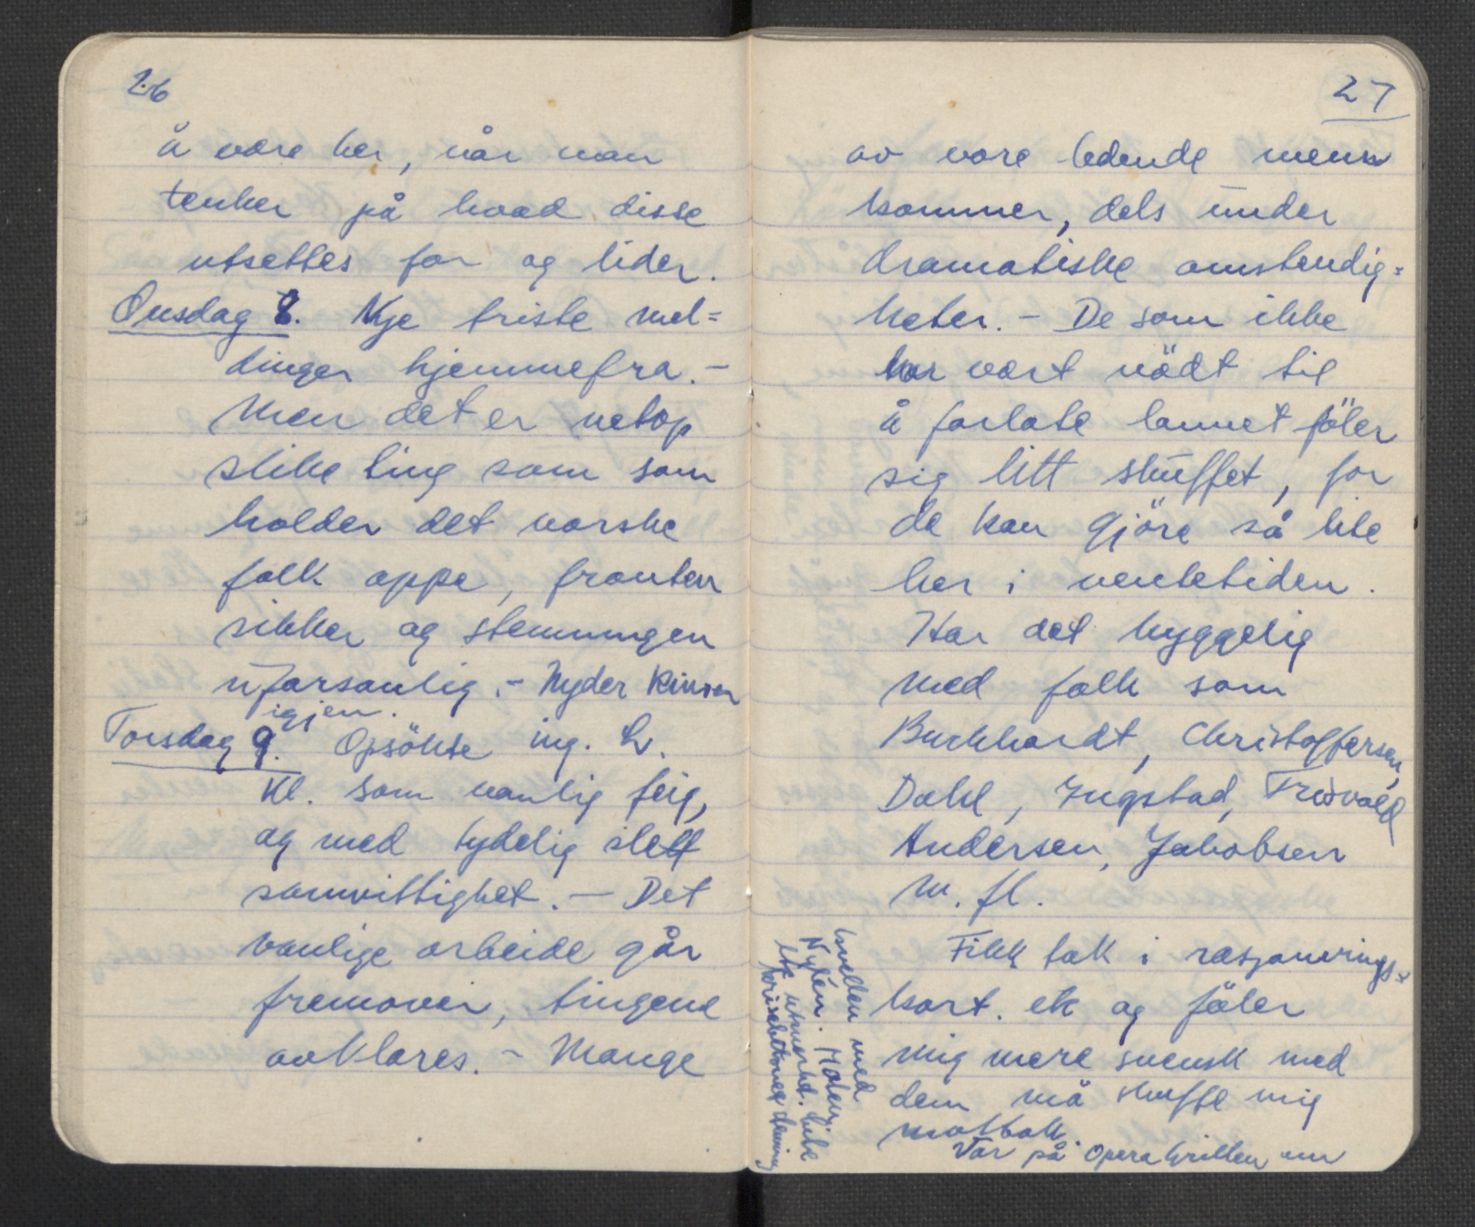 26
å være her, når man
tenker på hvad disse
utsettes for og lider.
Onsdag 8. Nye triste mel=
dinger hjemmefra. -
Men det er netop
slike ting som som
holder det norske
folk oppe, fronten
sikker og stemningen
uforsonlig. - Nyder
igjen.
Torsdag 9. Opsökte ing. L.
Kl. som vanlig feig,
og med tydelig slett
samvittighet. — Det
vanlige arbeide går
fremover, tingene
avklares. - Mange
27
av vore ledende menn
kommer, dels under
dramatiske omstendig=
heter. - De som ikke
har vært nödt til
å forlate lannet föler
sig litt skuffet, for
de kan gjöre så lite
her i ventetiden.
Har det hyggelig
med folk som
Burkhardt, Christoffersen,
Dahl, Ingstad,
Andersen, Jakobsen
m. fl.
Fikk tak i rasjonerings=
kort. etc og föler
mig mere svensk med
dem må skaffe mig
motbok.
Var på Operagrillen om
kvelden med
Nylén. Maten
utmerket. Litt